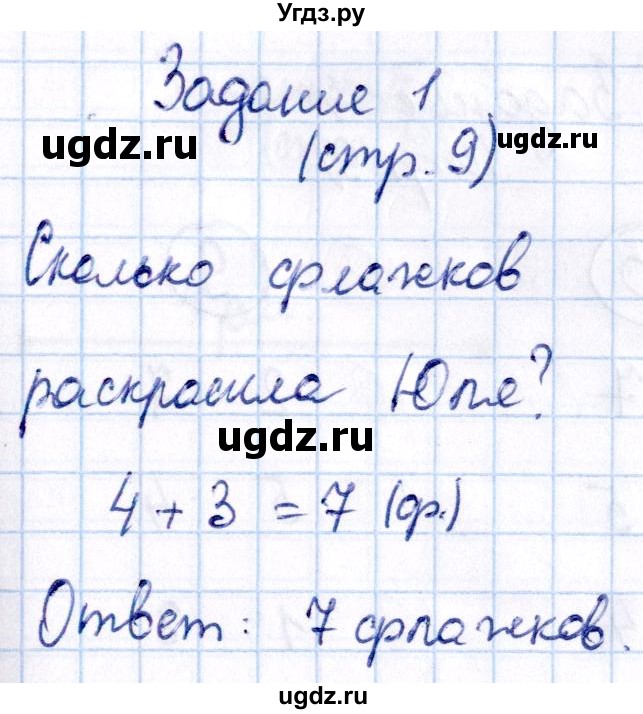 Угдз.ру
Задание 1
ugdz.ru
(стр. 9)
ugdz.ru
Сколько флажков
раскрасила Юля?
ugdz.ru
4 + 3 = 7 (ф.)
Ответ: 7 флажков.
ugdz.ru